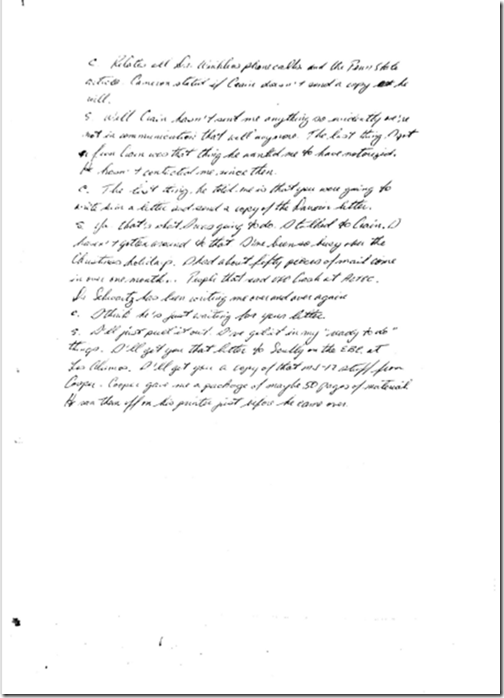 C. Relates all Dr. Winklers phone calls and the Penn State
article. Cameron stated if Crain doesn't send a copy he
will.
S. Well Crain hasn't sent me anything so evidently we're
not in communication that well anymore. The last thing I got
from Crain was that thing he wanted me to have notorized.
He hasn't contacted me since then.
C. The last thing he told me is that you were going to
write him a letter and send a copy of the letter.
S. that is what I was going to do. I talked to Crain. I
haven't gotten around to that I've been so busy over the
Christmas holidays. I had about fifty pieces of mail come
in over one month. People that read back at
Dr Schwartz has been writing me over and over again
C. I think he is just waiting for your letter.
S. I'll just put it out. I've got it in my "ready to do"
things. I'll get you that letter to Scully on the EBE. at
Los Alamos. I'll get you a copy of that MJ-12 stuff from
Cooper. Cooper gave me a package of maybe 50 pages of material
He ran them off on his printer just before he came over.